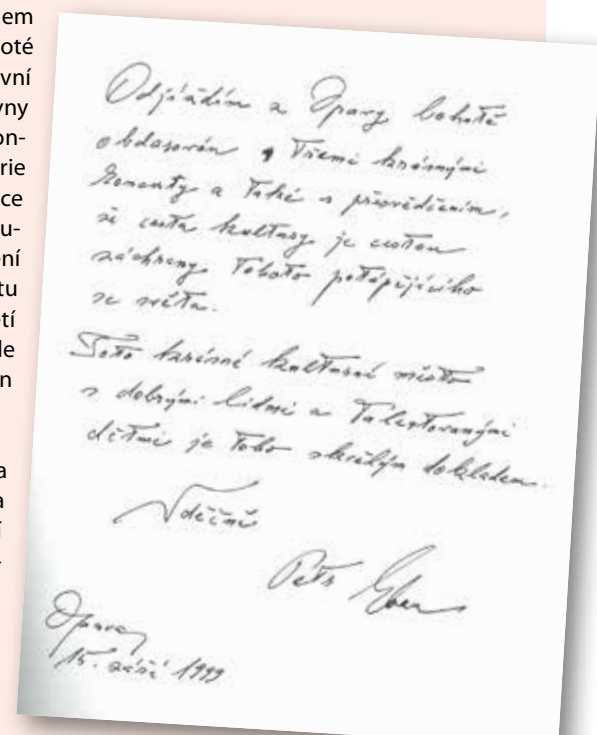 em
oté
vní
vny
on-
rie
ce
u-
ení
tu
etí
de
n
a
a
í
Odjíždím z Opavy bohatě
obdarován třemi krásnými
koncerty a také s přesvědčením,
že cesta kultury je cestou
záchrany tohoto potápějícího
se světa.
Toto krásné kulturní město
s dobrými lidmi a talentovanými
dětmi je toho skvělým dokladem.
Vděčně
Petr Eben
Opava
15. září 1999